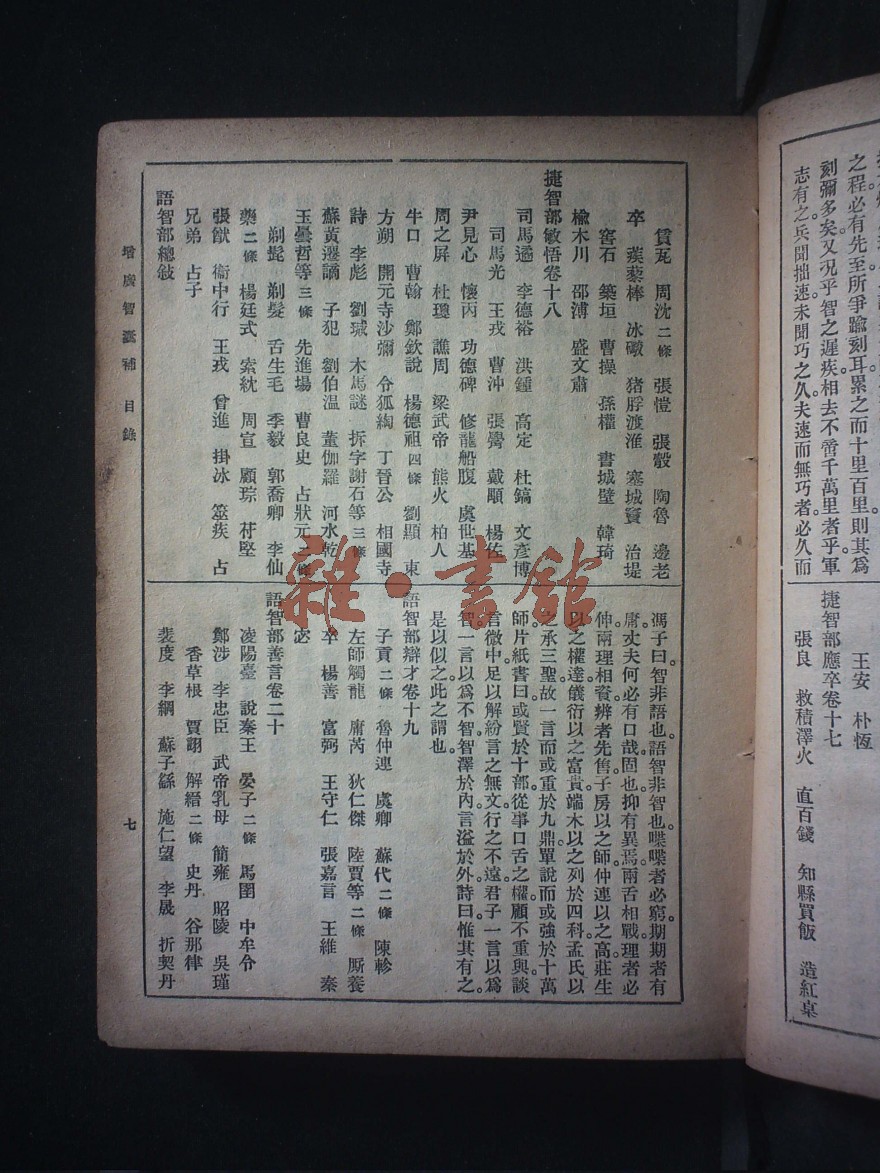 之程必有先至所爭踰刻耳。累之而十里百里。則其爲
刻彌多矣。又況乎智之遲疾。相去不啻千萬里者乎。軍
志有之。兵聞拙速。未聞巧之久。夫速而無巧者必久而
王安 朴恆
捷智部應卒卷十七
張良 救積澤火 直百錢 知縣買飯 造紅桌
賃瓦 周沈二條 張愷 張瑴 陶魯 邊老
卒 蒺藜棒 冰礮 猪脬渡淮 塞城竇 治堤
窖石 築垣 曹操 孫權 書城壁 韓琦
楡木川 邵溥 盛文肅
捷智部敏悟卷十八
司馬遹 李德裕 洪鍾 高定 杜鎬 文彥博
司馬光 王戎 曹沖 張𧮭 戴顒 楊佐
尹見心 懷丙 功德碑 修龍船腹 虞世基
周之屏 杜瓊 譙周 梁武帝 熊火 柏人
牛口 曹翰 鄭欽說 楊德祖四條 劉顯 東
方朔 開元寺沙彌 令狐綯 丁晉公 相國寺
詩 李彪 劉瑊 木馬謎 拆字謝石等三條
蘇黃遷謫 子犯 劉伯温 董伽羅 河水乾
玉曇哲等三條 先進場 曹良史 占狀元二條
剃髭 剃髮 舌生毛 季毅 郭喬卿 李仙
藥二條 楊廷式 索紞 周宣 顧琮 苻堅
張猷 衞中行 王戎 曾進 掛冰 筮疾 占
兄弟 占子
語智部總敍
馮子曰。智非語也。語智非智也。喋喋者必窮。期期者有
庸。丈夫何必有口哉。固也。抑有異焉。兩舌相戰。理者必
伸。兩理相資。辨者先售。子房以之師。仲連以之高。莊生
以之權達。儀衍以之富貴。端木以之列於四科。孟氏以
之承三聖。故一言而或重於九鼎。單說而或強於十萬
師。片紙書曰。或賢於十部從事。口舌之權。顧不重與。談
言微中。足以解紛。言之無文。行之不遠。君子一言以爲
智。一言以爲不智。智澤於內。言溢於外。詩曰。惟其有之。
是以似之。此之謂也。
語智部辯才卷十九
子貢二條 魯仲連 虞卿 蘇代二條 陳軫
左師觸龍 庸芮 狄仁傑 陸賈等二條 厮養
卒 楊善 富弼 王守仁 張嘉言 王維 秦
宓
語智部善言卷二十
凌陽臺 說秦王 晏子二條 馬圉 中牟令
鄭涉 李忠臣 武帝乳母 簡雍 昭陵 吳瑾
香草根 賈詡 解縉二條 史丹 谷那律
裴度 李綱 蘇子繇 施仁望 李晟 折契丹
增廣智囊補 目錄
七
雜·書館